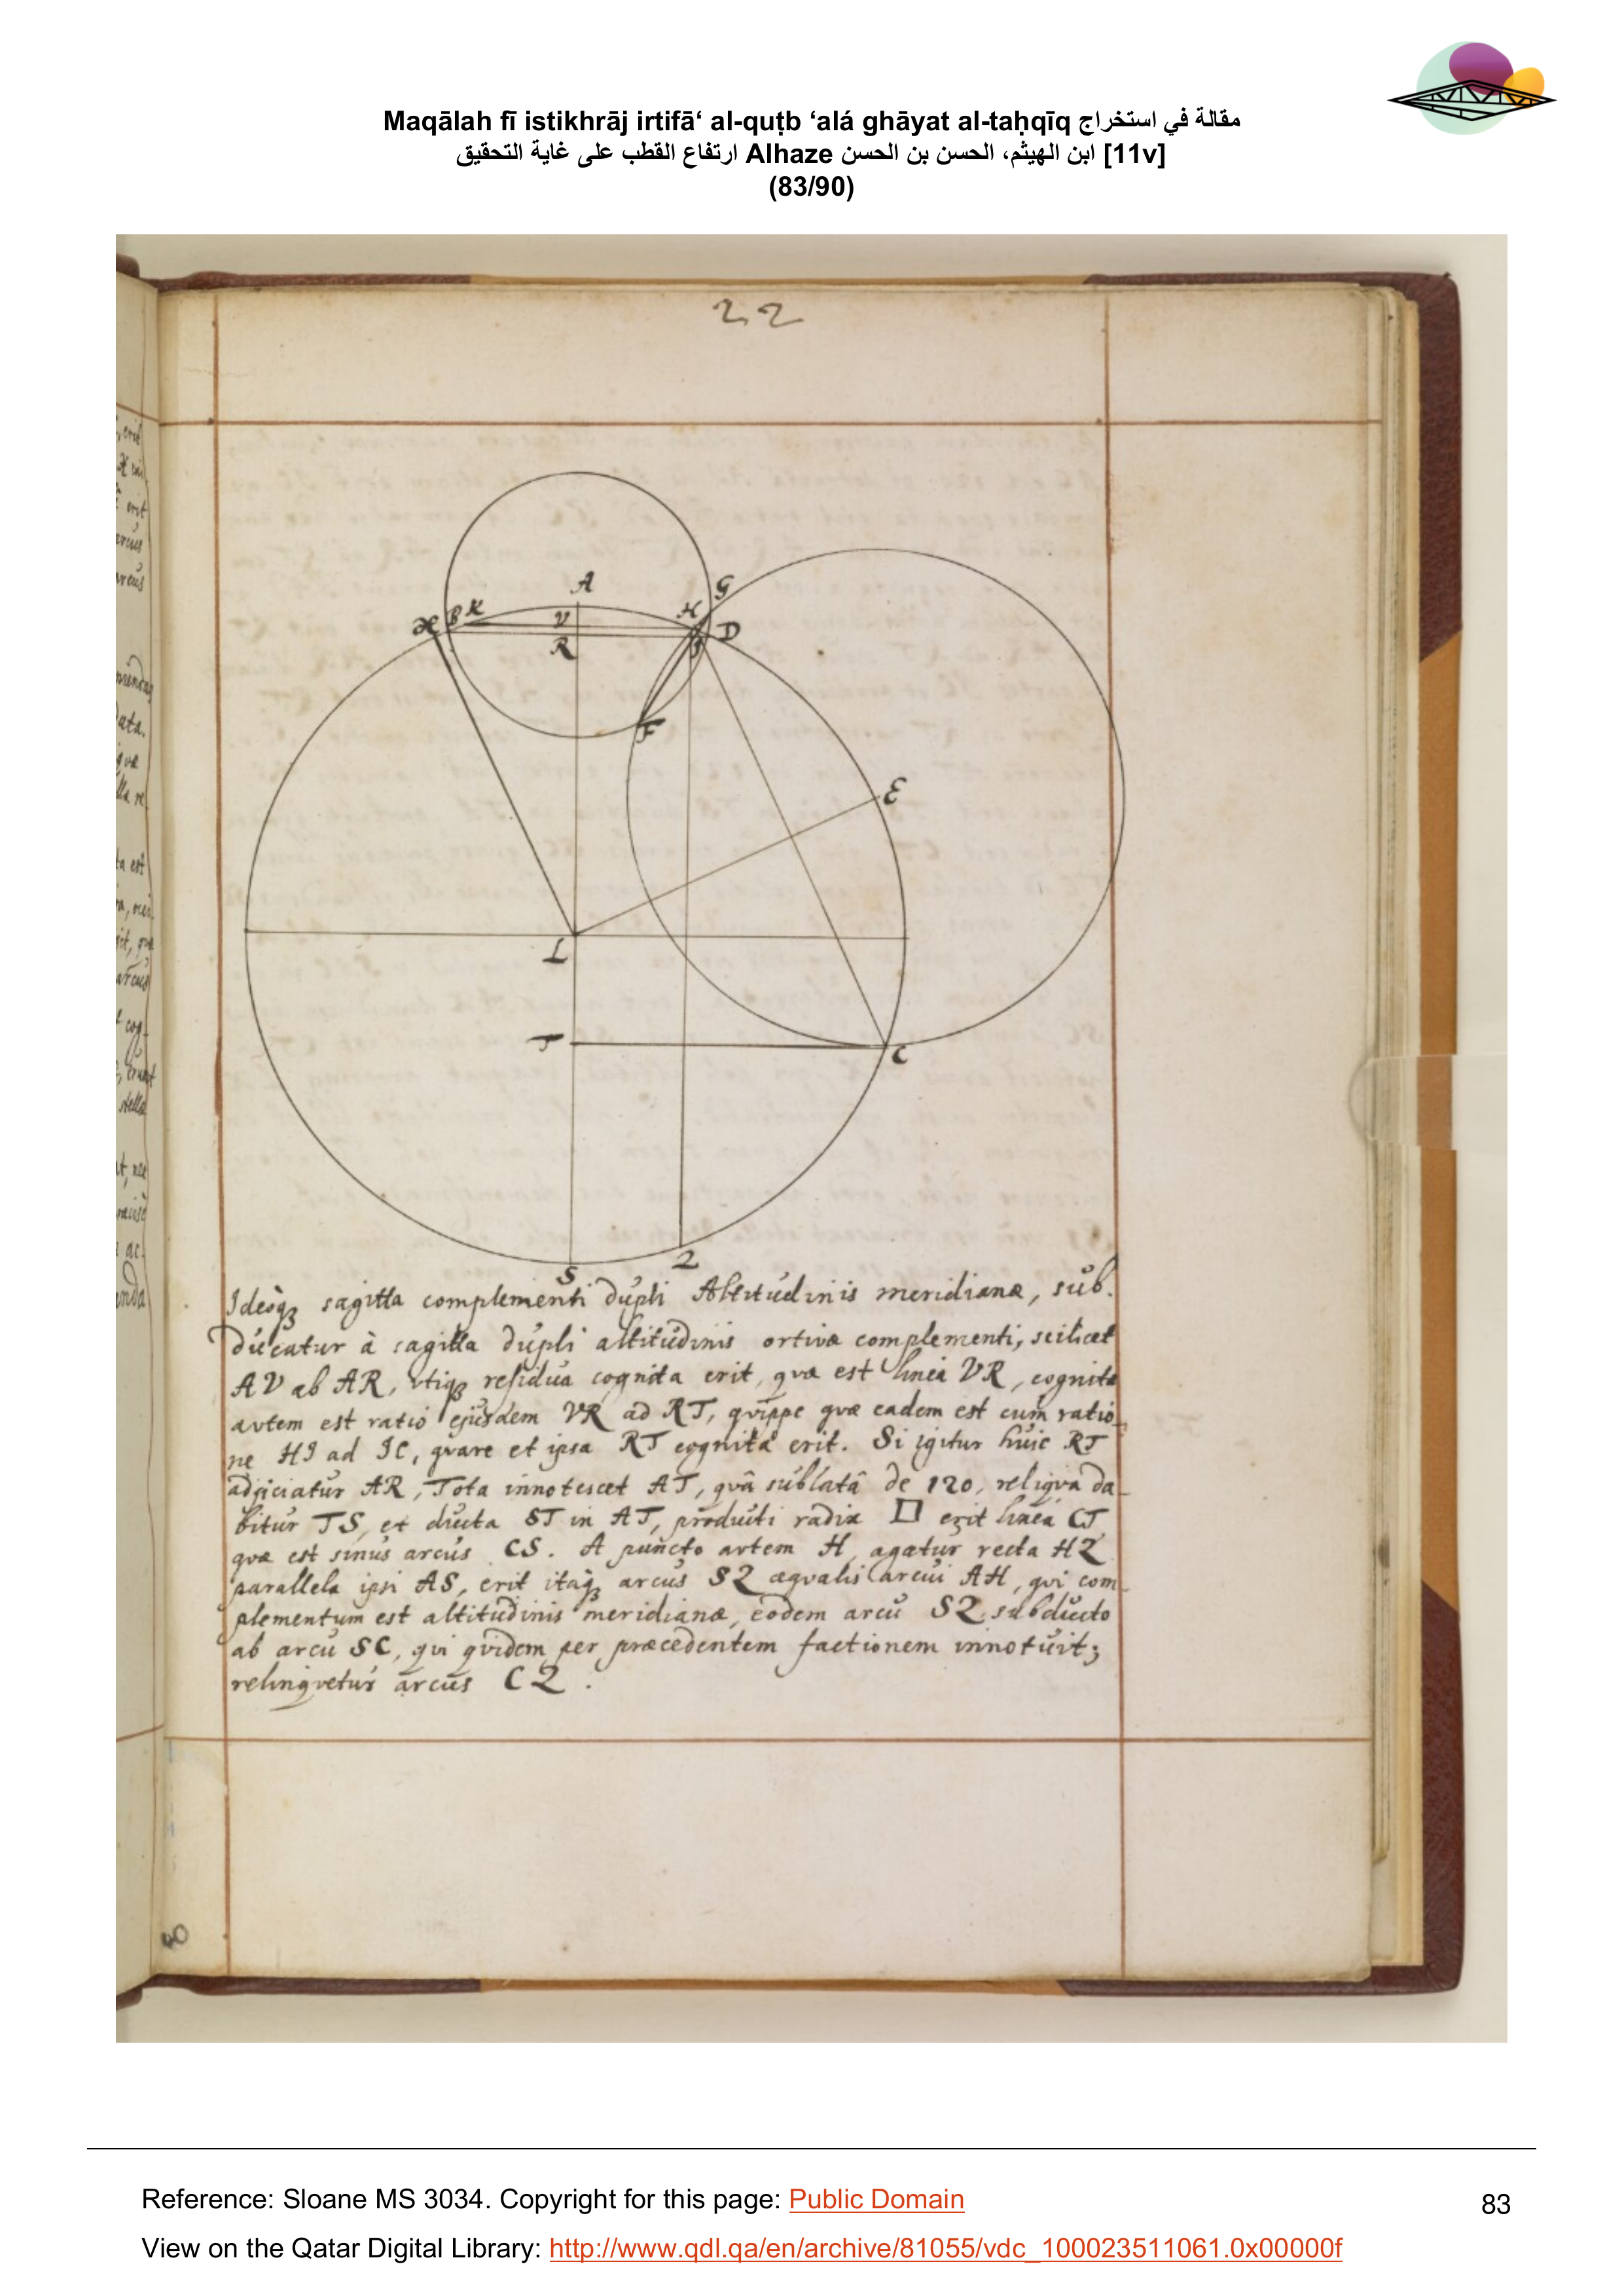 Maqālah fī istikhrāj irtifā‘ al-quṭb ‘alá ghāyat al-taḥqīq مقالة في استخراج
ارتفاع القطب على غاية التحقيق Alhaze ابن الهيثم، الحسن بن الحسن [11v]
(83/90)
22
A
G
B K
V
H
D
R
F
E
L
T
C
S
Z
Ideoqꝫ sagitta complementi dupli Altitudinis meridianæ, sub.
ducatur à sagitta dupli altitudinis ortivæ complementi, scilicet
AV ab AR, utiqꝫ residua cognita erit, quæ est linea VR, cognita
autem est ratio ejusdem VR ad RT, quippe quæ eadem est cum ratio_
ne HI ad IC, quare et ipsa RT cognita erit. Si igitur huic RT
adjiciatur AR, Tota innotescet AT, quâ sublatâ de 120, reliqua da_
bitur TS, et ducta ST in AT, producti radix □ erit linea CT
quæ est sinus arcus CS. A puncto autem H, agatur recta HZ
parallela ipsi AS, erit itaqꝫ arcus SZ æqualis arcui AH, qui com_
plementum est altitudinis meridianæ, eodem arcu SZ subducto
ab arcu SC, qui quidem per præcedentem factionem innotuit;
relinquetur arcus CZ.
40
Reference: Sloane MS 3034. Copyright for this page: Public Domain
View on the Qatar Digital Library: http://www.qdl.qa/en/archive/81055/vdc_100023511061.0x00000f
83